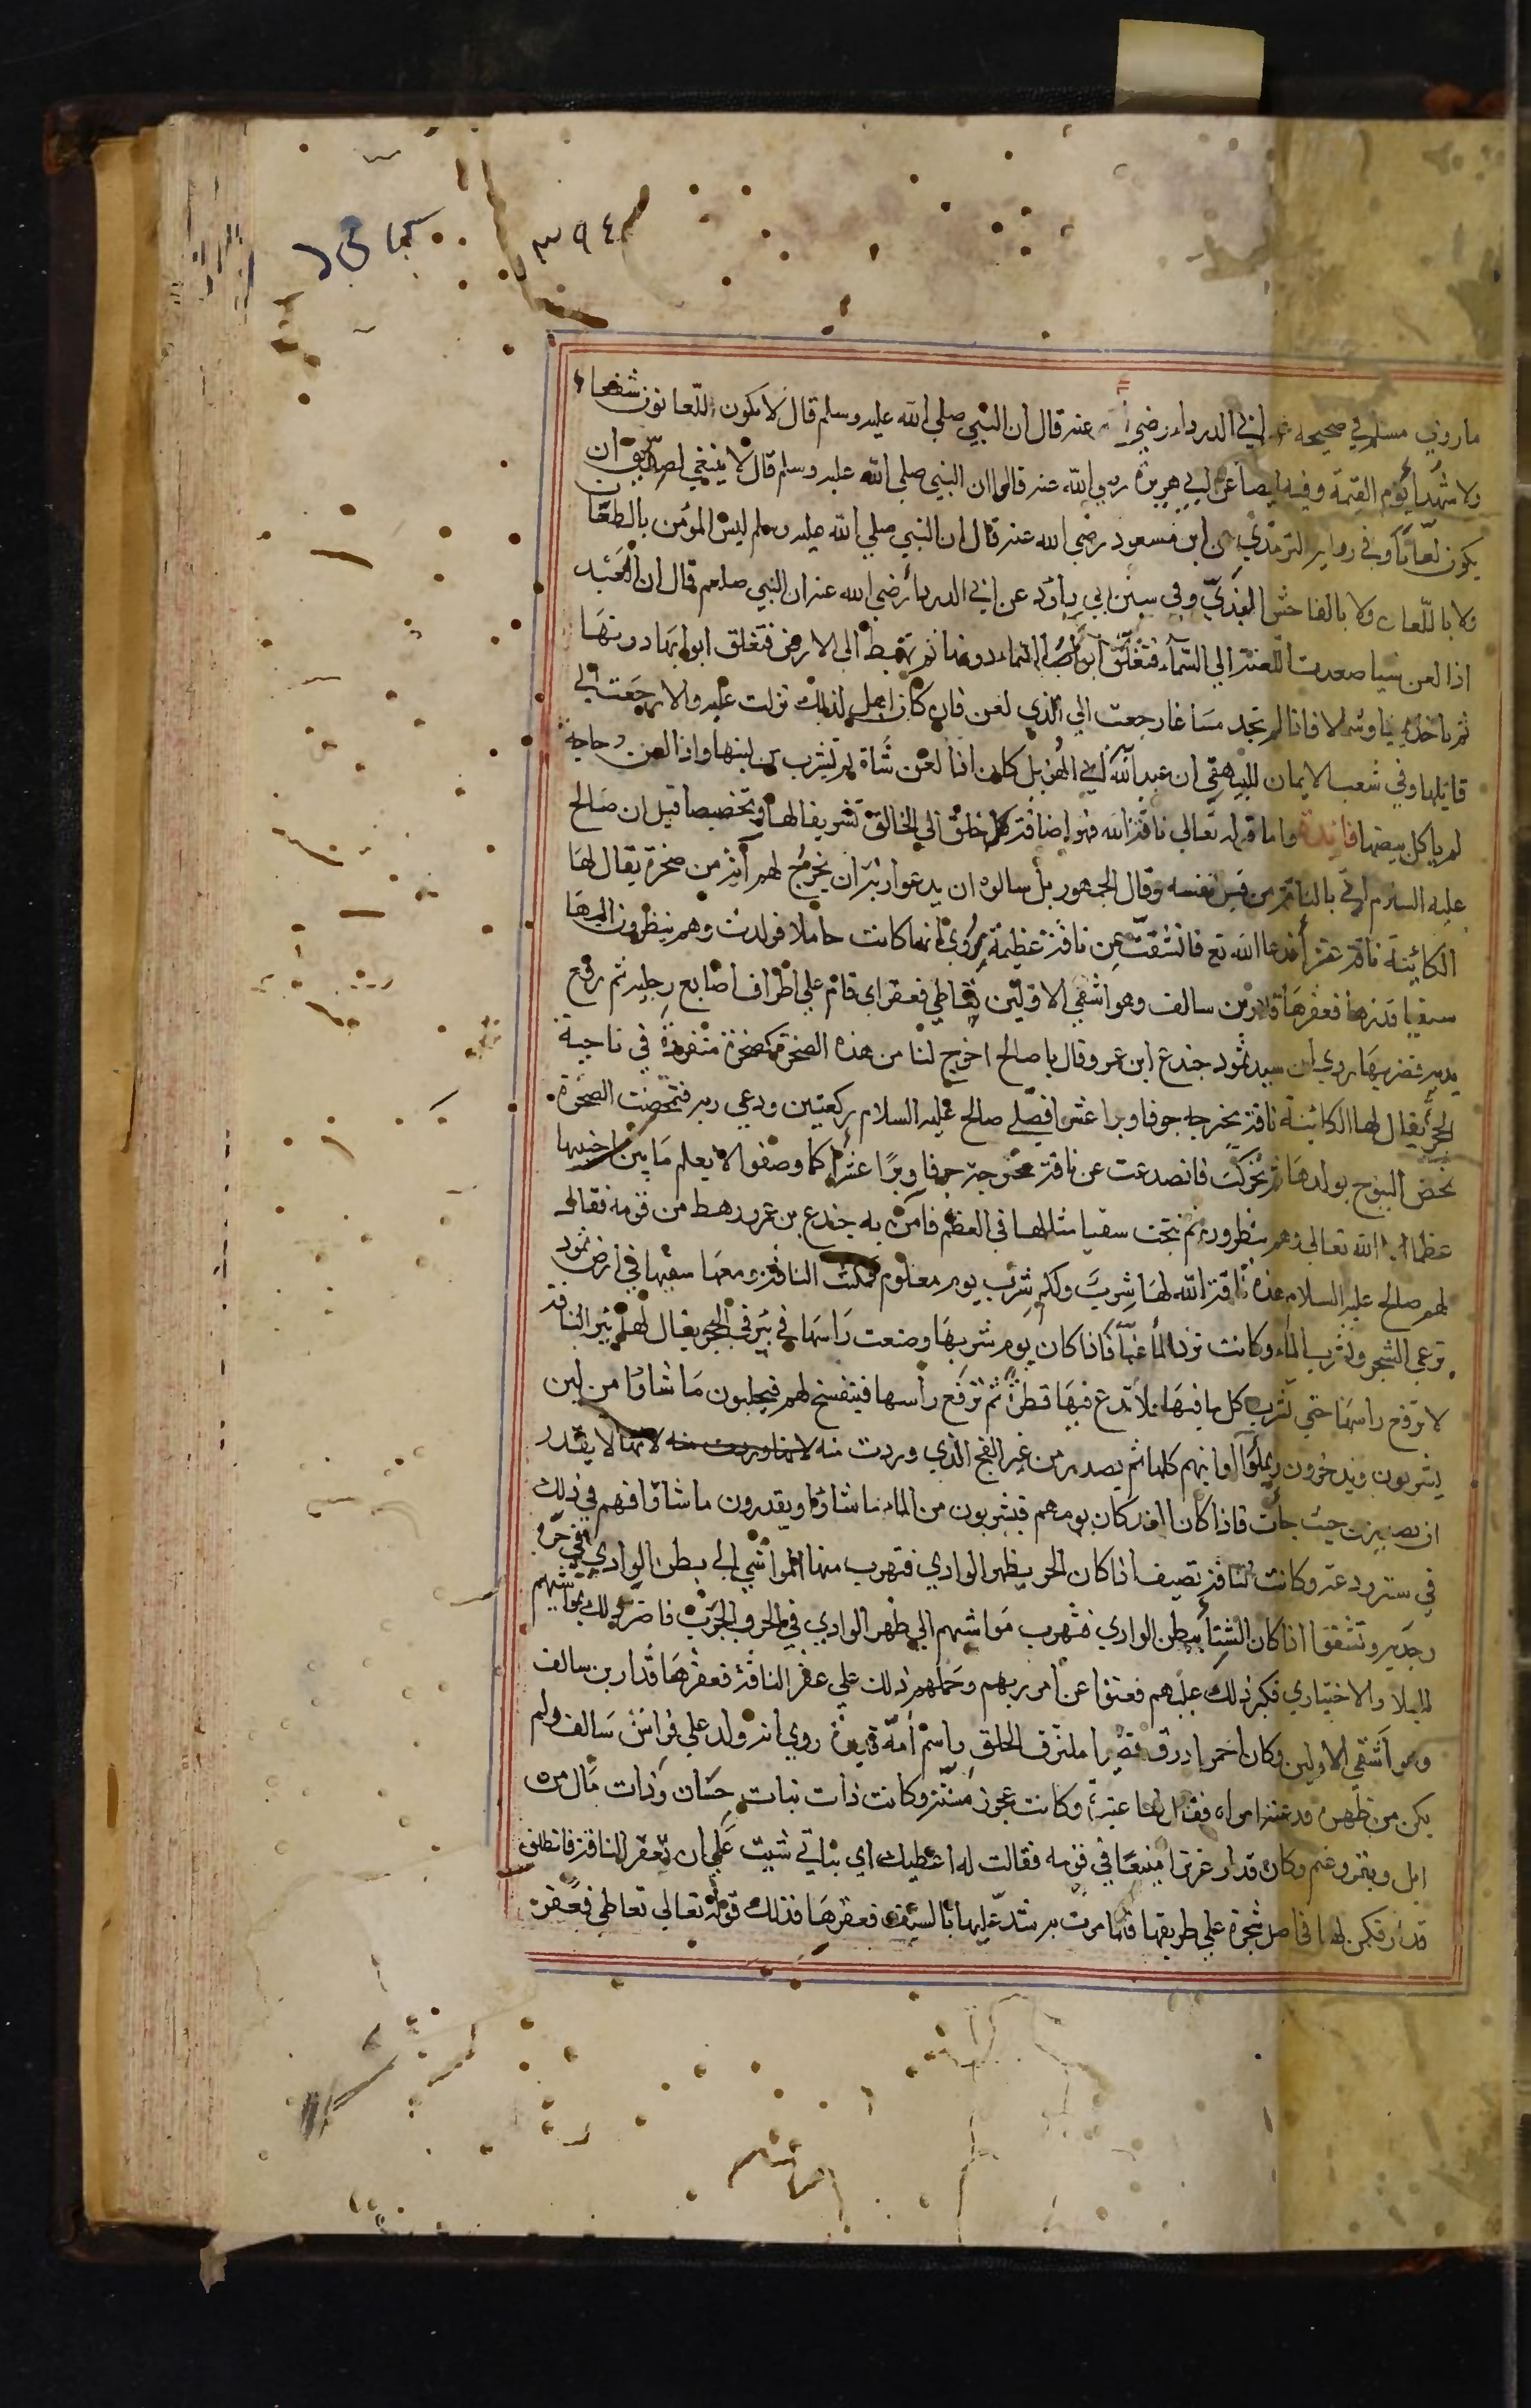 ٣٩٤
ما روي مسلم في صحيحه عن ابي الدرداء رضي الله عنه قال ان النبي صلي الله عليه وسلم قال لا يكون اللعانون شفعاء
ولا شهدا يوم القيمة وفيه ايضا عن ابي هريرة رضي الله عنه قالوا ان النبي صلي الله عليه وسلم قال لا ينبغي لصديق ان
يكون لعانا وفي رواية الترمذي عن ابن مسعود رضي الله عنه قال ان النبي صلي الله عليه وسلم ليس المؤمن بالطعان
ولا باللعان ولا بالفاحش البذي وفي سنن ابي داود عن ابي الدرداء رضي الله عنه ان النبي صلعم قال ان العبد
اذا لعن شيا صعدت اللعنة الي السماء فتغلق ابواب السماء دونها ثم تهبط الى الارض فتغلق ابوابها دونها
ثم تاخذ يمينا وشمالا فاذا لم تجد مساغا رجعت الي الذي لعن فان كان اهل لذلك نزلت عليه والا رجعت الي
قايلها وفي شعب الايمان للبيهقي ان عبد الله ابي الهذيل كان اذا لعن شاة لم يشرب من لبنها واذا لعن دجاجة
لم ياكل بيضها فائدة واما قوله تعالي ناقة الله فهو اضافة كل خلق الي الخالق تشريفا لها وتخصيصا قيل ان صالح
عليه السلام اتي بالناقة من قبل نفسه وقال الجمهور بل سالوه ان يدعوا ربه ان يخرج لهم آية من صخرة يقال لها
الكائبة ناقة عشراء فدعا الله تع فانشقت عن ناقة عظيمة وروي انها كانت حاملا فولدت وهم ينظرون اليها
سقبا قدرها فعقرها قدار بن سالف وهو اشقي الاولين فتعاطي فعقر اي قام علي اطراف اصابع رجليه ثم رفع
يديه فضربها روي ان سيد ثمود جندع ابن عمرو قال يا صالح اخرج لنا من هذه الصخرة كصخرة منفردة في ناحية
الحجر يقال لها الكائبة ناقة مخترجه جوفا وبرا عشرا فصلي صالح عليه السلام ركعتين ودعي ربه فتمخضت الصخرة
تمخض النتوج بولدها ثم تحركت فانصدعت عن ناقة مخترجة جوفا وبرا عشرا كما وصفوا لا يعلم ما بين جنبيها
عظما الا الله تعالي وهم ينظرون ثم نتجت سقبا مثلها في العظم فآمن به جندع بن عمرو ورهط من قومه فقال
لهم صالح عليه السلام هذه ناقة الله لها شرب ولكم شرب يوم معلوم فمكثت الناقة ومعها سقبها في ارض ثمود
ترعي الشجر وتشرب الماء وكانت ترد الماء غبا فاذا كان يوم شربها وضعت راسها في بئر في الحجر يقال لها بئر الناقة
لا ترفع راسها حتي تشرب كل ما فيها فلا تدع فيها قطرة ثم ترفع رأسها فيتفسح لهم فيحلبون ما شاؤا من لبن
يشربون ويدخرون ويملؤا اوانيهم كلها ثم يصدر من غير الفج الذي وردت منه لانها لا يقدر
ان يصدر من حيث جات فاذا كان الغد كان يومهم فيشربون من الماء ما شاؤا ويقدرون ما شاؤا فهم في ذلك
في سعة ودعة وكانت الناقة تصيف اذا كان الحر بظهر الوادي فتهرب منها المواشي الي بطن الوادي في حره
وجدبه وتشتوا اذا كان الشتا ببطن الوادي فتهرب مواشيهم الي ظهر الوادي في الحر والجدب فاضر ذلك بمواشيهم
للبلا والاختباري فكبر ذلك عليهم فعتوا عن امر ربهم وحملهم ذلك علي عقر الناقة فعقرها قدار بن سالف
وهو اشقي الاولين وكان احمر ازرق قصيرا ملتزق الخلق واسم امه قديرة روي انه ولد علي فراش سالف ولم
يكن من ظهره فدعته امراة يقال لها عنيزة وكانت عجوز مسنة وكانت ذات نبات حسان وذات مال من
ابل وبقر وغنم وكان قدار عزيزا منيعا في قومه فقالت له اعطيك اي بناتي شيت علي ان تعقر الناقة فانطلق
قدار فكمن لها في اصل شجرة علي طريقها فلما مرت به شد عليها بالسيف فعقرها فذلك قوله تعالي تعاطي فعقر